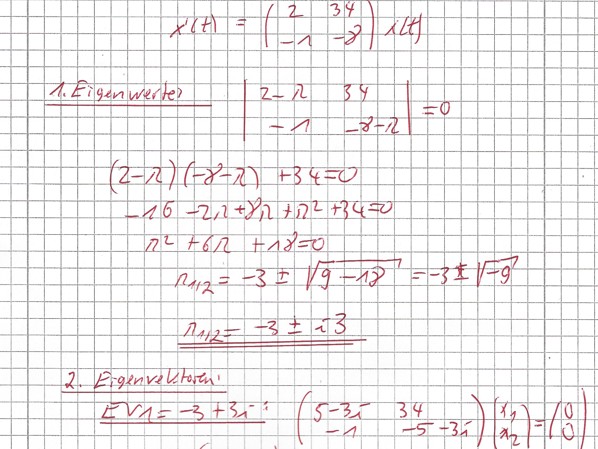 x'(t) = (2 34 −1 −8) x(t)
1. Eigenwerte: |2−λ 34 −1 −8−λ| = 0
(2−λ)(−8−λ) +34=0
−16 −2λ+8λ+λ² +34=0
λ² +6λ +18=0
λ1,2 = −3 ± √9−18 = −3 ± √−9
λ1,2 = −3 ± i3
2. Eigenvektoren:
EV1 = −3+3i: (5−3i 34 −1 −5−3i) (x1 x2) = (0 0)